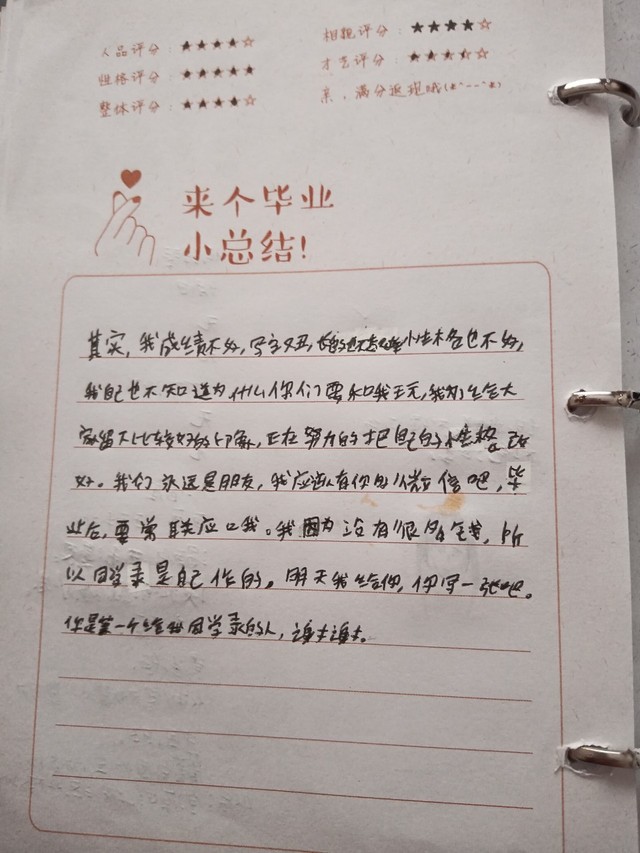 人品评分：★★★★☆
相貌评分：★★★★☆
性格评分：★★★★★
才艺评分：★★★★☆
整体评分：★★★★☆
亲，满分返现哦(*^--^*)
来个毕业
小总结!
其实，我成绩不好，写字又丑，小性格也不好，
我自己也不知道为什么你们要和我玩，我为了给大
家留下比较好的印象，正在努力的把自己的小性格改
好。我们永远是朋友，我应该有你的微信吧，毕
业后，要常联应口我。我因为没有很多钱，所
以同学录是自己作的，明天我给你，你写一张吧。
你是第一个给我同学录的人，谢谢谢谢。